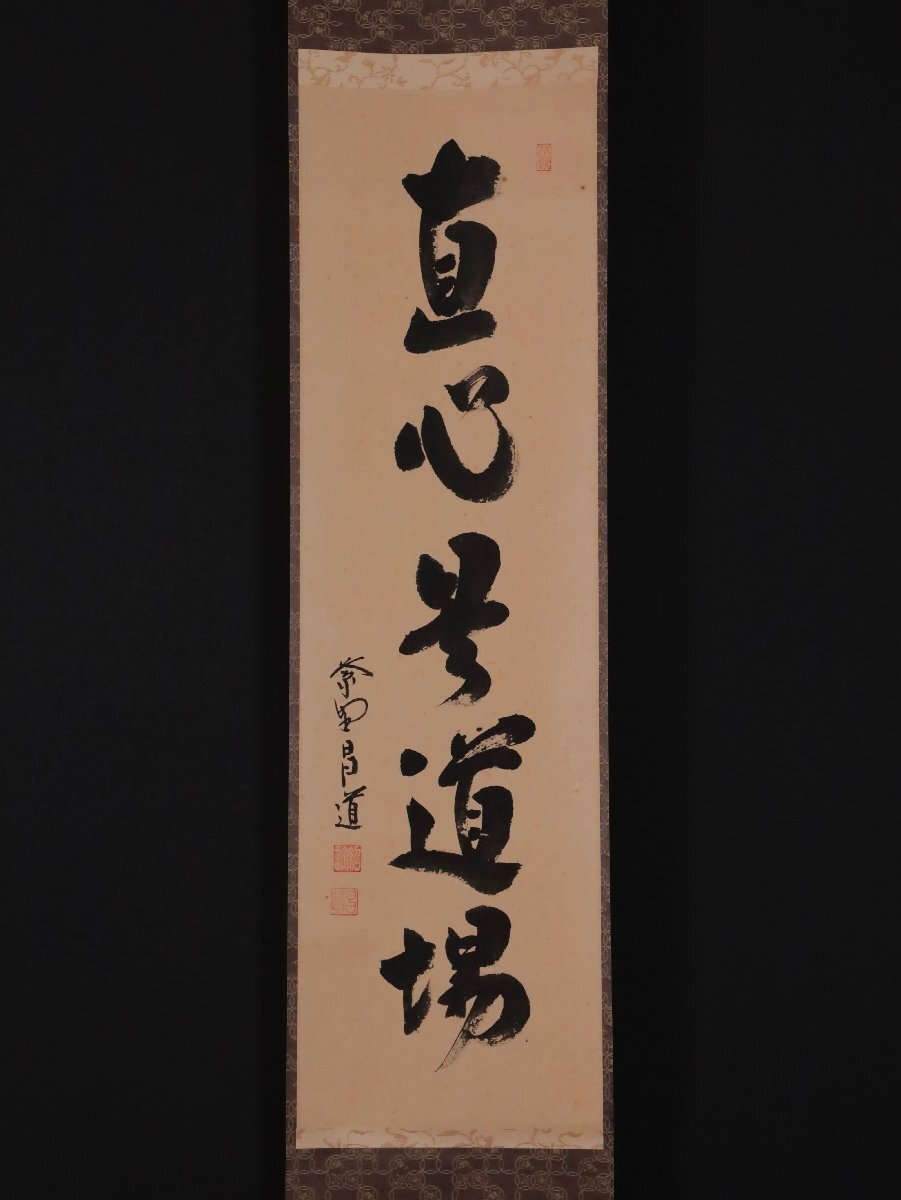 直心是道場
紫野昌道